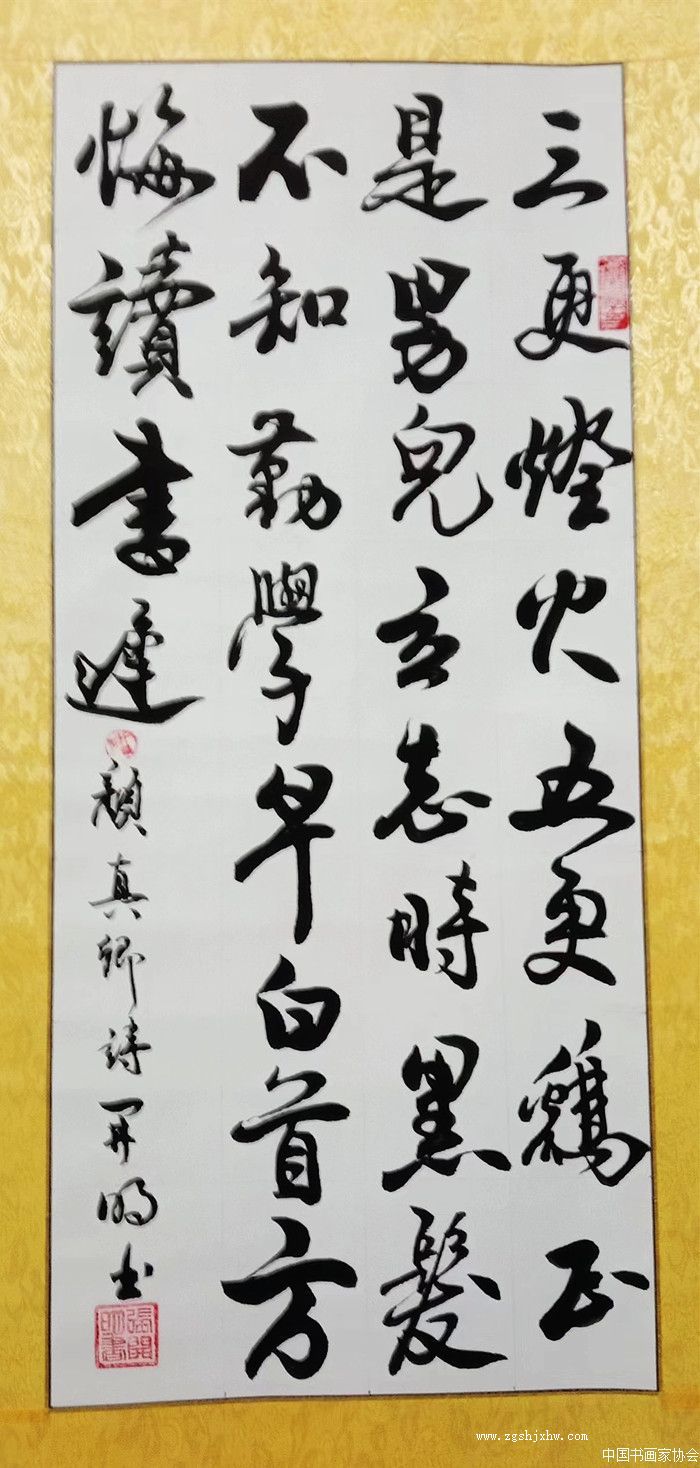 三更燈火五更鷄正
是男兒立志時黑髮
不知勤學早白首方
悔讀書遲
顏真卿詩 開明書
張開明書
www.zgshjxhw.com
中国书画家协会